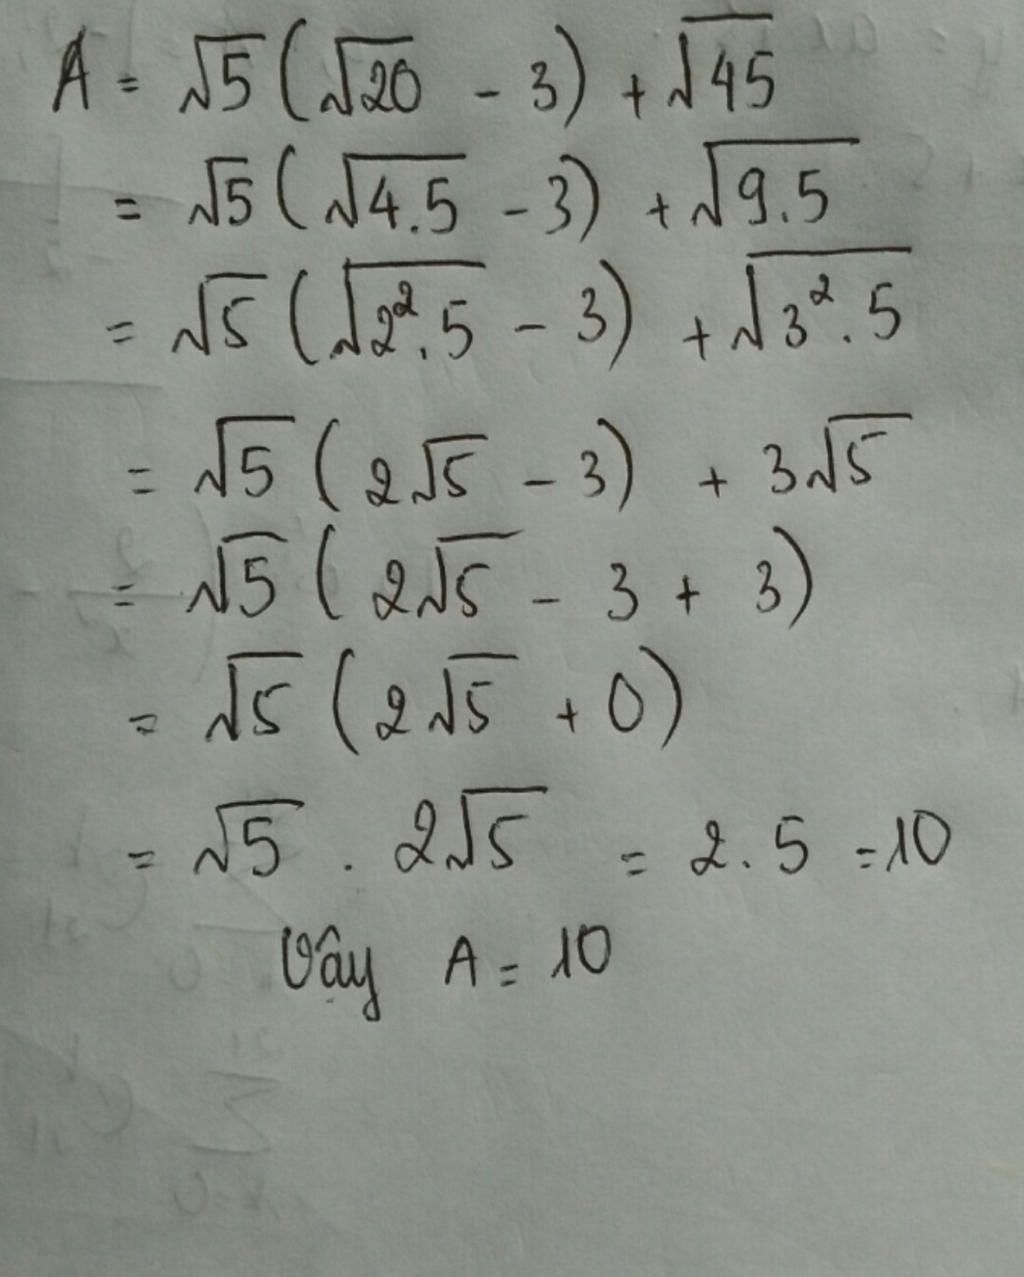 A = √5 (√20 - 3) + √45
= √5 (√4.5 - 3) + √9.5
= √5 (√2².5 - 3) + √3².5
= √5 (2√5 - 3) + 3√5
= √5 (2√5 - 3 + 3)
= √5 (2√5 + 0)
= √5 . 2√5 = 2.5 = 10
Vậy A = 10